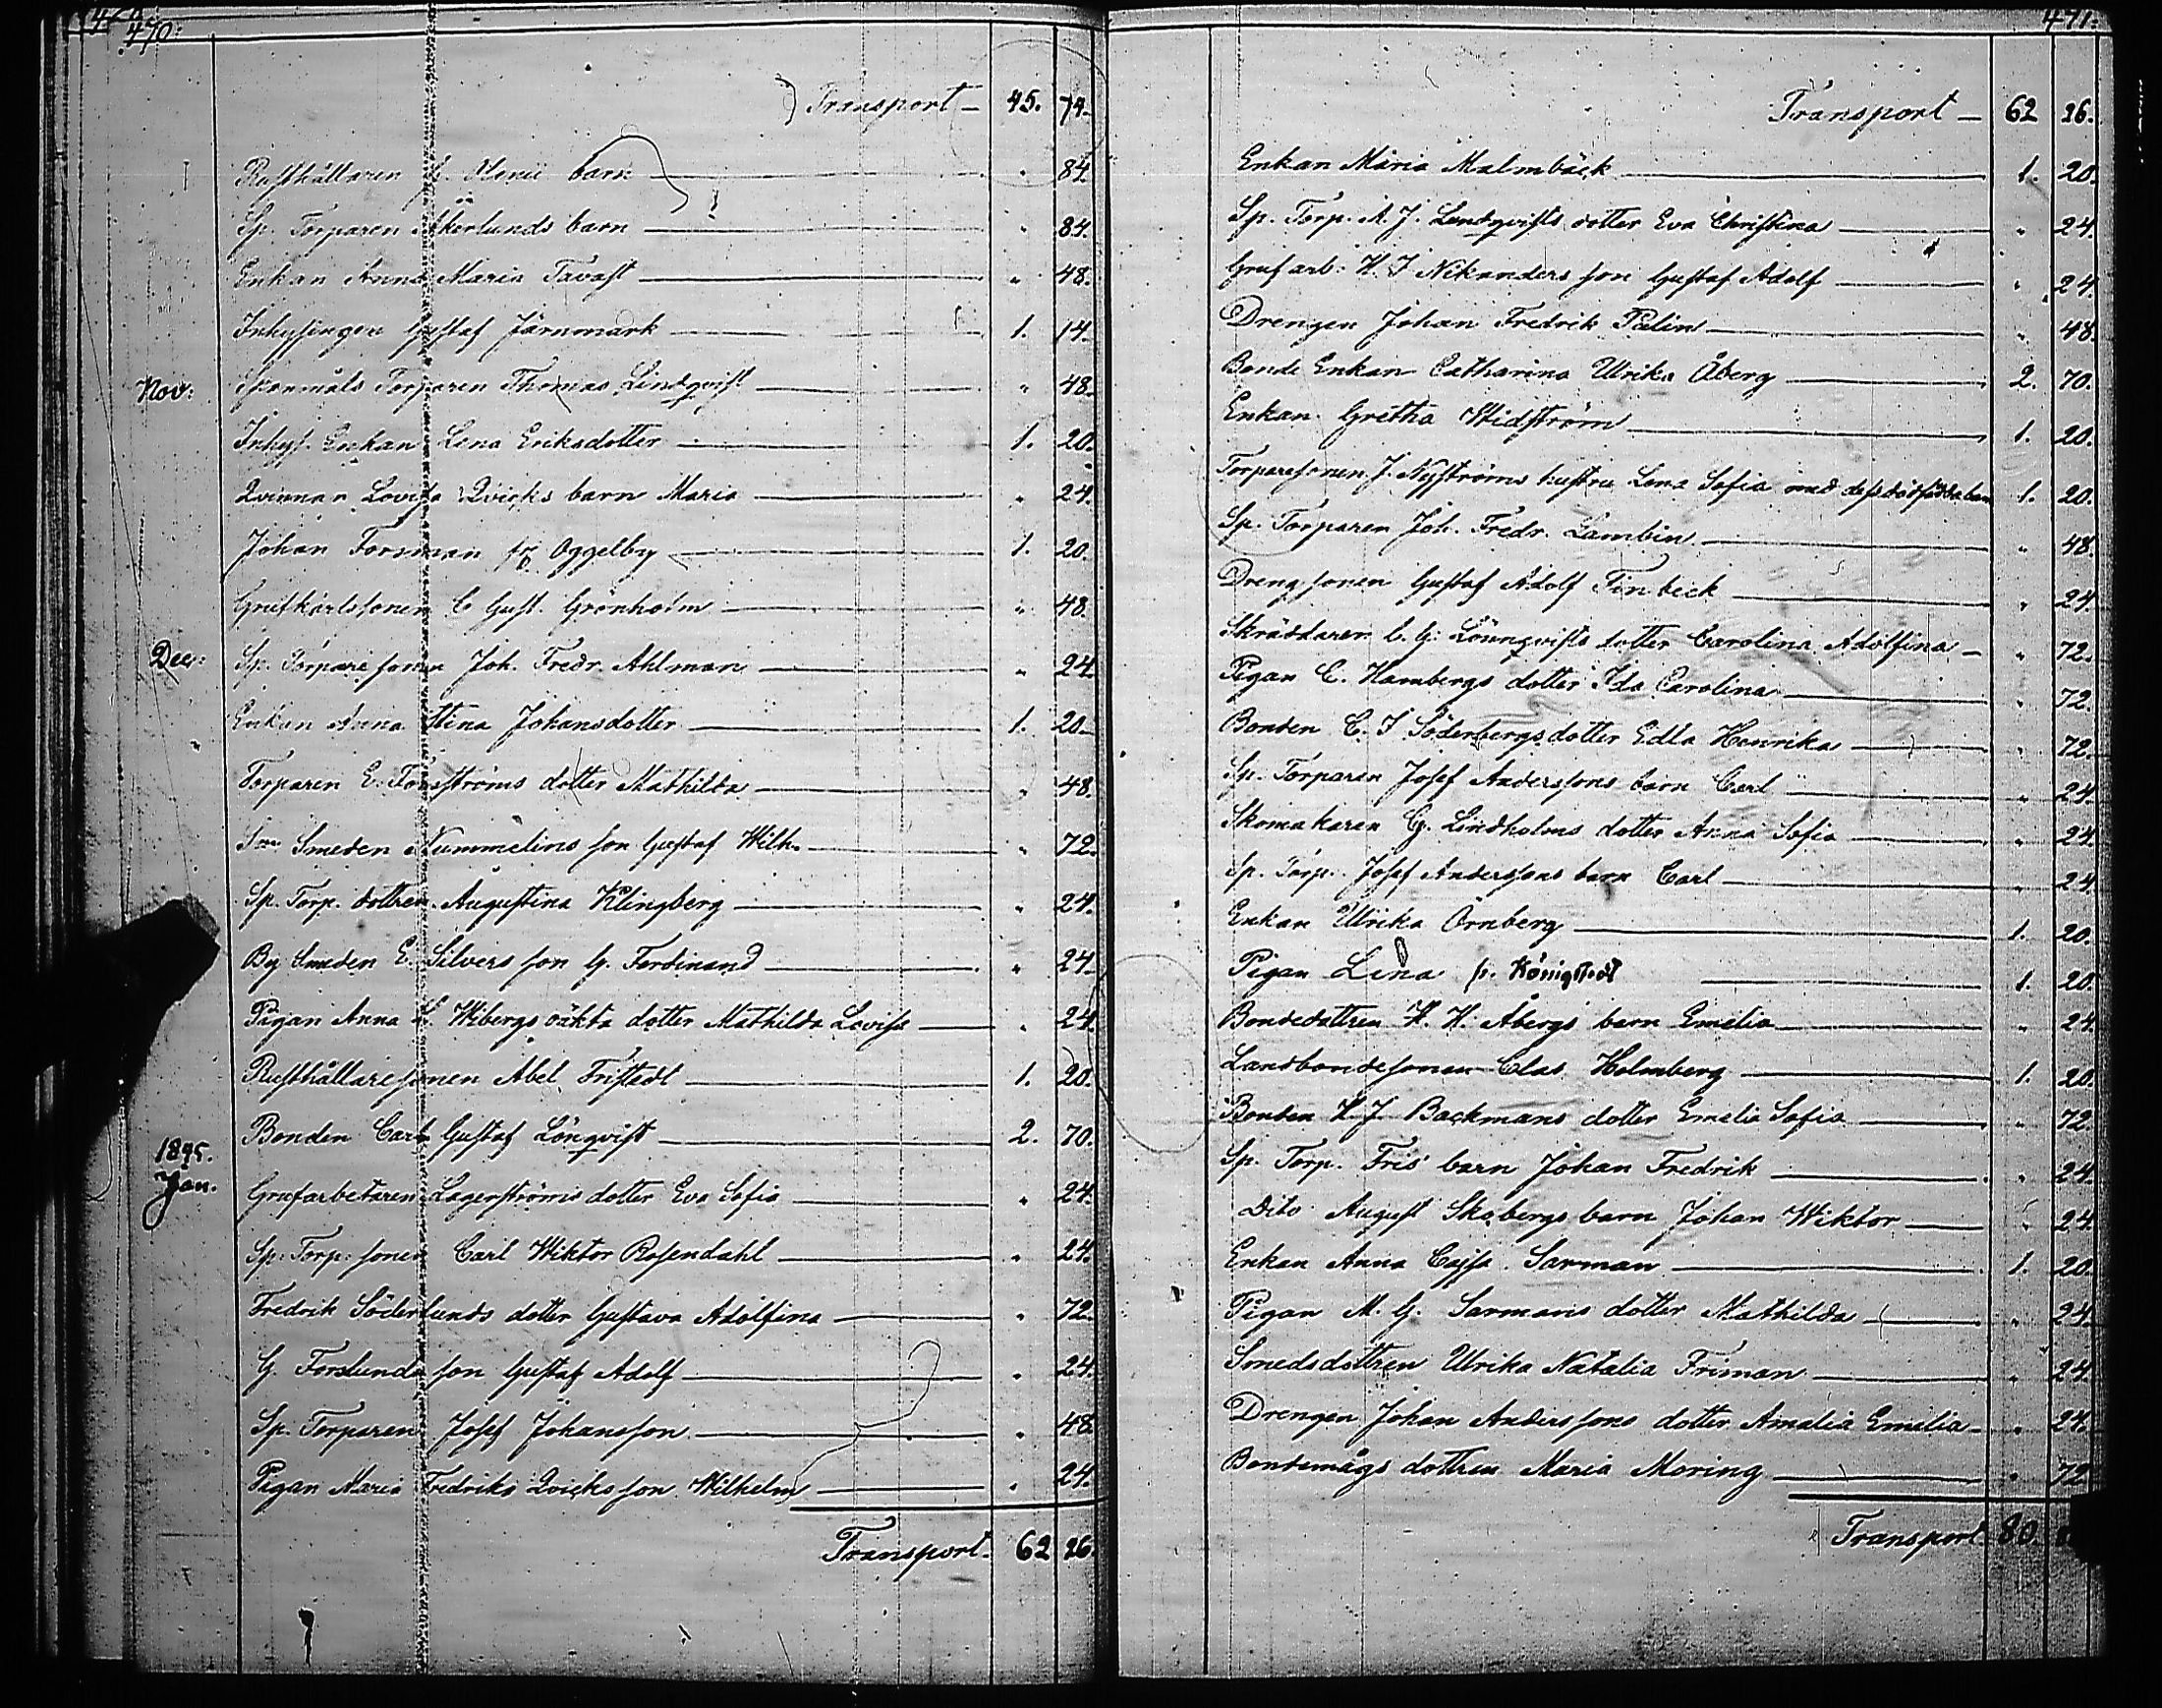 470.
Transport — 45. 74.
Rusthållaren barn — " 84.
Sp. Torparen Åkerlunds barn — " 84.
Enkan Anna Maria Tavast — " 48.
Inhysingen Gustaf Järnmark — 1. 14.
Nov: Torparen Thomas Lindqvist — " 48.
Inhys. Enkan Lena Eriksdotter — 1. 20.
Qvinnan Lovisa Qvicks barn Maria — " 24.
Johan Forsman fr Oggelby — 1. 20.
Grufkarlssonen C Gust. Grönholm — " 48.
Dec: Sp. Torpare sonen Joh. Fredr. Ahlman — " 24.
Enkan Anna Stina Johansdotter — 1. 20.
Torparen E. Forsströms dotter Mathilda — " 48.
Smeden Nummelins son Gustaf Wilh. — " 72.
Sp. Torp. dottren Augustina Klingberg — " 24.
By Smeden E. Silvers son G. Ferdinand — " 24.
Pigan Anna L. Wibergs oäkta dotter Mathilda Lovisa — " 24.
Rusthållaresonen Abel Fristedt — 1. 20.
Bonden Carl Gustaf Lönqvist — 2. 70.
1895.
Jan. Grufarbetaren Lagerströms dotter Eva Sofia — " 24.
Sp: Torp: sonen Carl Wiktor Rosendahl — " 24.
Fredrik Söderlunds dotter Gustava Adolfina — " 72.
G. Forslunds son Gustaf Adolf — " 24.
Sp. Torparen Josef Johansson — " 48.
Pigan Maria Fredrika Qvicks son Wilhelm — " 24.
Transport. 62 26.
471.
Transport — 62 26.
Enkan Maria Malmbäck — 1. 20.
Sp. Torp. A. J. Lundqvists dotter Eva Christina — " 24.
Grufarb: K. J Nikanders son Gustaf Adolf — " 24.
Drengen Johan Fredrik Palin — " 48.
Bonde Enkan Catharina Ulrika Åberg — 2. 70.
Enkan Gretha Widström — 1. 20.
Torparesonen J. Nyströms hustru Lena Sofia med dess dödfödda barn 1. 20.
Sp. Torparen Joh. Fredr. Lambin — " 48.
Drengsonen Gustaf Adolf Finbeck — " 24.
Skräddaren C. G: Lönnqvists dotter Carolina Adolfina — " 72.
Pigan C. Hambergs dotter Ida Carolina — " 72.
Bonden C. J Söderbergs dotter Edla Henrika — " 72.
Sp. Torparen Josef Anderssons barn Carl — " 24.
Skomakaren G. Lindholms dotter Anna Sofia — " 24.
Sp. Torp. Josef Anderssons barn Carl — " 24
Enkan Ulrika Örnberg — 1. 20.
Pigan Lena fr. Königstedt — 1. 20.
Bondedottren H. H. Åbergs barn Emelia — " 24
Landbondesonen Clas Holmberg — 1. 20.
Bonden K J Backmans dotter Emelia Sofia — " 72.
Sp. Torp. Fris' barn Johan Fredrik — " 24.
Dito August Skabergs barn Johan Wiktor — " 24
Enkan Anna Cajsa Sarman — 1. 20.
Pigan M. G. Sarmans dotter Mathilda — " 24.
Smedsdottren Ulrika Natalia Friman — " 24.
Drengen Johan Anderssons dotter Amalia Emelia — " 24.
Bondemågs dottren Maria Moring — " 72.
Transport 80.